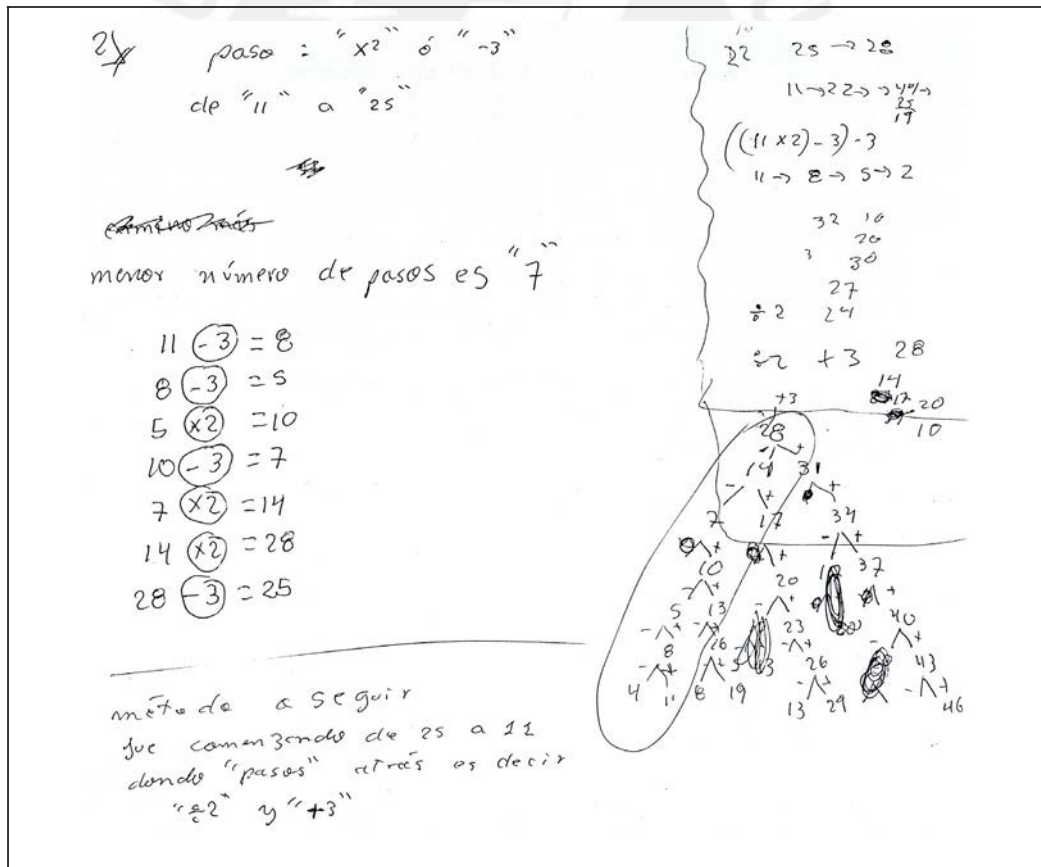 2)
paso : "x2" ó "-3"
de "11" a "25"
menor número de pasos es "7"
11 (-3) = 8
8 (-3) = 5
5 (x2) = 10
10 (-3) = 7
7 (x2) = 14
14 (x2) = 28
28 (-3) = 25
método a seguir
fue comenzando de 25 a 11
dando "pasos" atrás es decir
"÷2" y "+3"
22 25 → 28
11 → 22 →
25
19
((11 x 2) - 3) - 3
11 → 8 → 5 → 2
32 10
20
3 30
27
÷ 2 24
÷2 + 3 28
14
17 20
10
+3
28
14 31
- + +
7 17 34
+ + - +
10 20 37
- + - + +
5 13 23 40
- + - + - + - +
8 26 43
- + - + - + - +
4 11 8 19 13 29 46